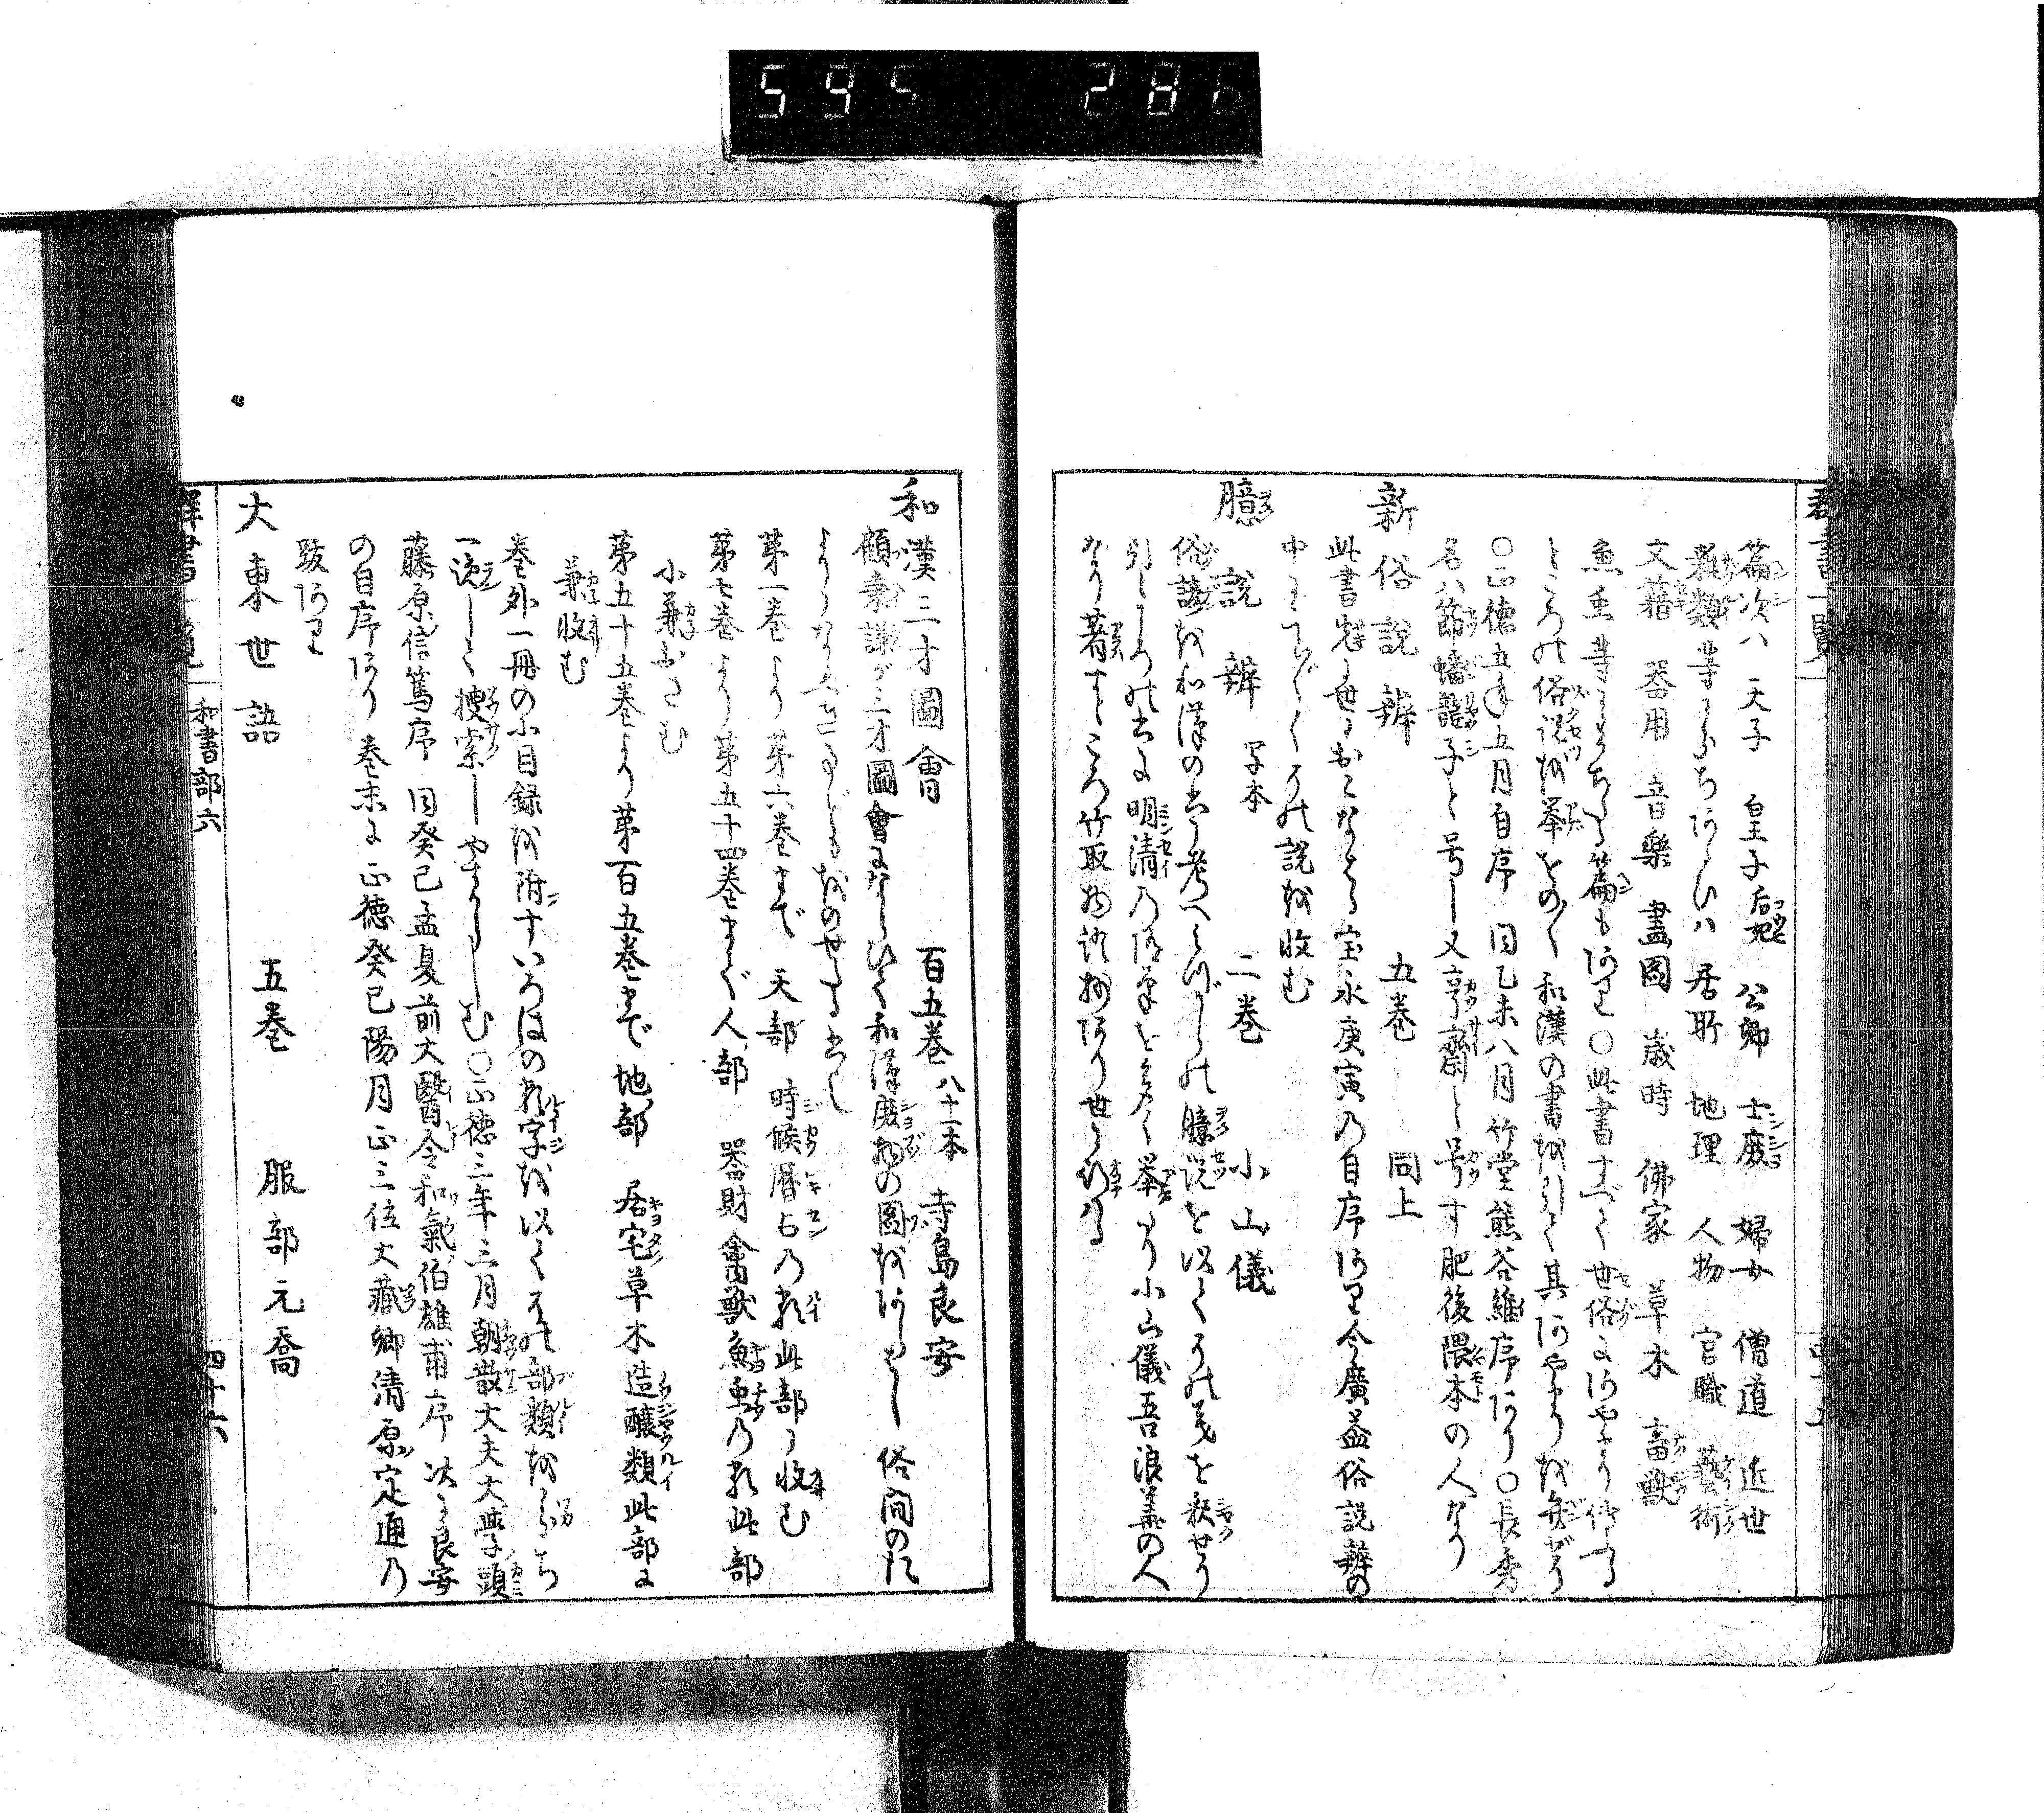 595 281
群書一覧
篇次ハ 天子 皇子 后妃 公卿 士庶 婦女 僧道 近世
雜類等にわかちあるひハ 居所 地理 人物 官職 藝術
文藉 器用 音樂 畫図 歳時 佛家 草木 畜獣
魚虫等にわかちたる篇もあり○此書すべて世俗にあやまり傳ふる
ところの俗説を挙その〳〵和漢の書を引て其あやまりを弁ぜり
○正徳五年五月自序 同乙未八月竹堂熊谷維序あり○長秀
名ハ節 蟠龍子と号し又亨齋と号す肥後隈本の人なり
新俗説辨 五巻 同上
此書先に世におこなはる宝永庚寅の自序あり今廣益俗説辨の
中にこと〴〵くその説を收む
臆説辨 写本 二巻 小山儀
俗説を和漢の書に考へしばらくの臆説を以てその義を釈せり
引ところの書に明清の随筆を多く挙たり小山儀吾浪華の人
なり著すところ竹取物語抄あり世に行はる
和漢三才圖會 百五巻 八十一本 寺島良安
顧秉謙が三才圖會にならひて和漢庶物の図をあらはし俗間のた
よりなるべき事どもをのせたる書也
第一巻より第六巻まで 天部 時候暦占の類此部に收む
第七巻より第五十四巻まで人部 器財禽獣魚虫の類此部
に兼おさむ
第五十五巻より第百五巻まで地部 居宅草木造醸類此部に
兼收む
巻外一冊の小目録を附すいろはの類字を以てその部類をわかち
一決して捜索しやすからしむ○正徳三年三月朝散大夫大学頭
藤原信篤序 同癸巳孟夏前大醫令和氣伯雄甫序 次に良安
の自序あり 巻末に正徳癸巳陽月正三位大藏卿清原定通の
跋あり
大東世語 五巻 服部元喬
群書一覧 和書部六 四十六